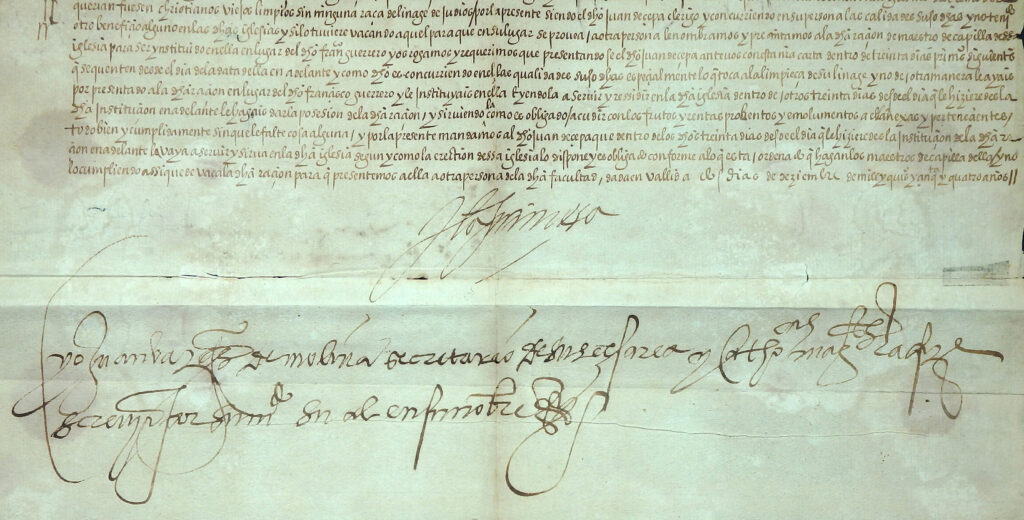 querian fuesen christianos viejos limpios sin ninguna raca de linage de judios por la presente siendo el dho juan de cepa clerigo y concurriendo en su persona las calidades suso dhas y no teniendo
otro beneficio alguno en las dhas iglesias y si lo tuviere vacando aquel para que en su lugar se provea a otra persona le nombramos y presentamos a la dha racion de maestro de capilla
iglesia para ser ynstituido en ella en lugar del dho franco guerrero y os rogamos y requerimos que presentandose el dho juan de cepa ante vos con esta nra carta dentro de treinta dias primos siguientes
que se quenten desde el dia de la data della en adelante y como dho es concurriendo en el las qualidades suso dhas especialmente lo q toca a la limpieça de su linage y no de otra manera le ayais
por presentado a la dha racion en lugar del dho francisco guerrero y le instituyais en ella yendola a servir y residir en la dha iglesia dentro de otros treinta dias desde el dia q le hizierdes la
dha institucion en adelante le hagais dar la posesion de la dha racion, y sirviendola como es obligado acudir con los frutos y rentas probentos y emolumentos a ella nexas y pertenecientes
todo bien y cumplidamente sin que le falte cosa alguna, y por la presente mandamos al dho juan de cepa que dentro de los dhos treinta dias desde el dia q le hizierdes la institucion de la dha ra
cion en adelante la vaya a servir y sirva en la dha iglesia segun y como la erection dessa iglesia lo dispone y es obligado conforme a lo que esta ordenado que hagan los maestros de capilla della y no
lo cumpliendo assi quede vaca la dha racion para que presentemos a ella a otra persona de la dha facultad, dada en vallid a dias de deziembre de mill y quis y cinqta y quatro años
yo Juan vazqz de molina secretario de sus cesarea y Catholicas mags la fize
screuir por su mdo su al en su nombre